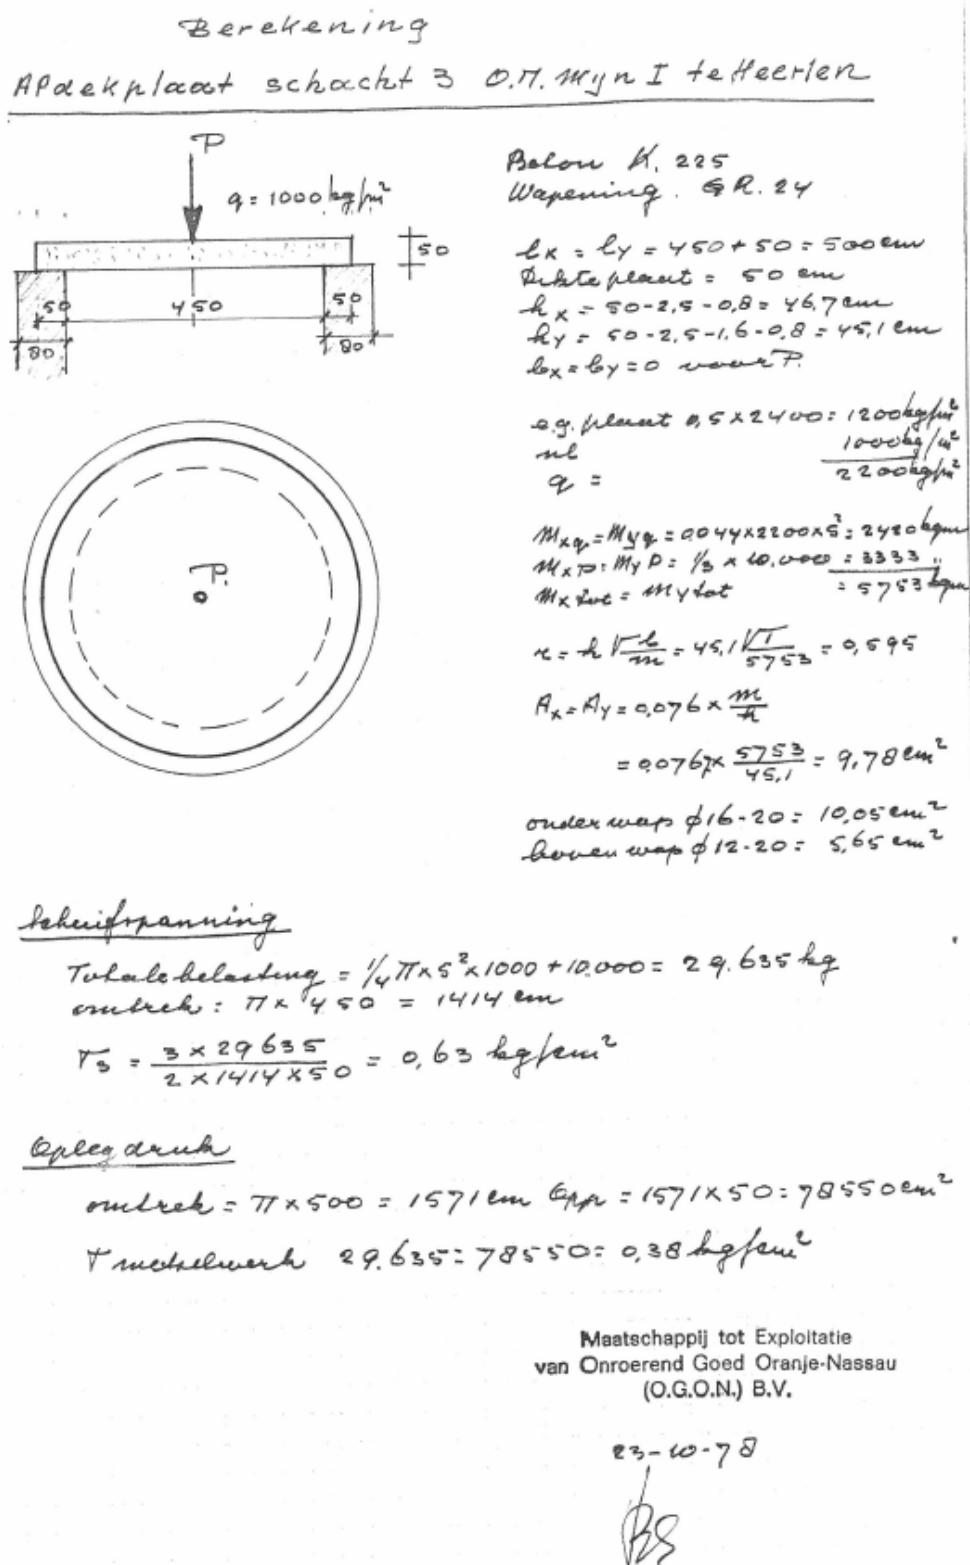 Berekening
Afdekplaat schacht 3 O.N. Mijn I te Heerlen
P
q = 1000 kg/m²
50
50 450 50
80 80
P.
Beton K. 225
Wapening. GR. 24
lx = ly = 450 + 50 = 500 cm
Dikte plaat = 50 cm
hx = 50-2,5-0,8 = 46,7 cm
hy = 50-2,5-1,6-0,8 = 45,1 cm
bx = by = 0 voor P.
e.g. plaat 0,5 x 2400 = 1200 kg/m²
nl 1000 kg/m²
q = 2200 kg/m²
mxq = myq = 0,044 x 2200 x 5² = 2420 kgm
mxp = myp = 1/3 x 10.000 = 3333 "
mx tot = my tot = 5753 kgm
r = h √b/m = 45,1 √1/5753 = 0,595
Ax = Ay = 0,076 x m/h
= 0,076 x 5753/45,1 = 9,78 cm²
onder wap ϕ 16-20 = 10,05 cm²
boven wap ϕ 12-20 = 5,65 cm²
Schuifspanning
Totale belasting = 1/4 π x 5² x 1000 + 10.000 = 29.635 kg
omtrek = π x 450 = 1414 cm
Ts = 3 x 29635 / 2 x 1414 x 50 = 0,63 kg/cm²
Opleg druk
omtrek = π x 500 = 1571 cm Opp = 1571 x 50 = 78550 cm²
T metselwerk 29.635 : 78550 = 0,38 kg/cm²
Maatschappij tot Exploitatie
van Onroerend Goed Oranje-Nassau
(O.G.O.N.) B.V.
23-10-78